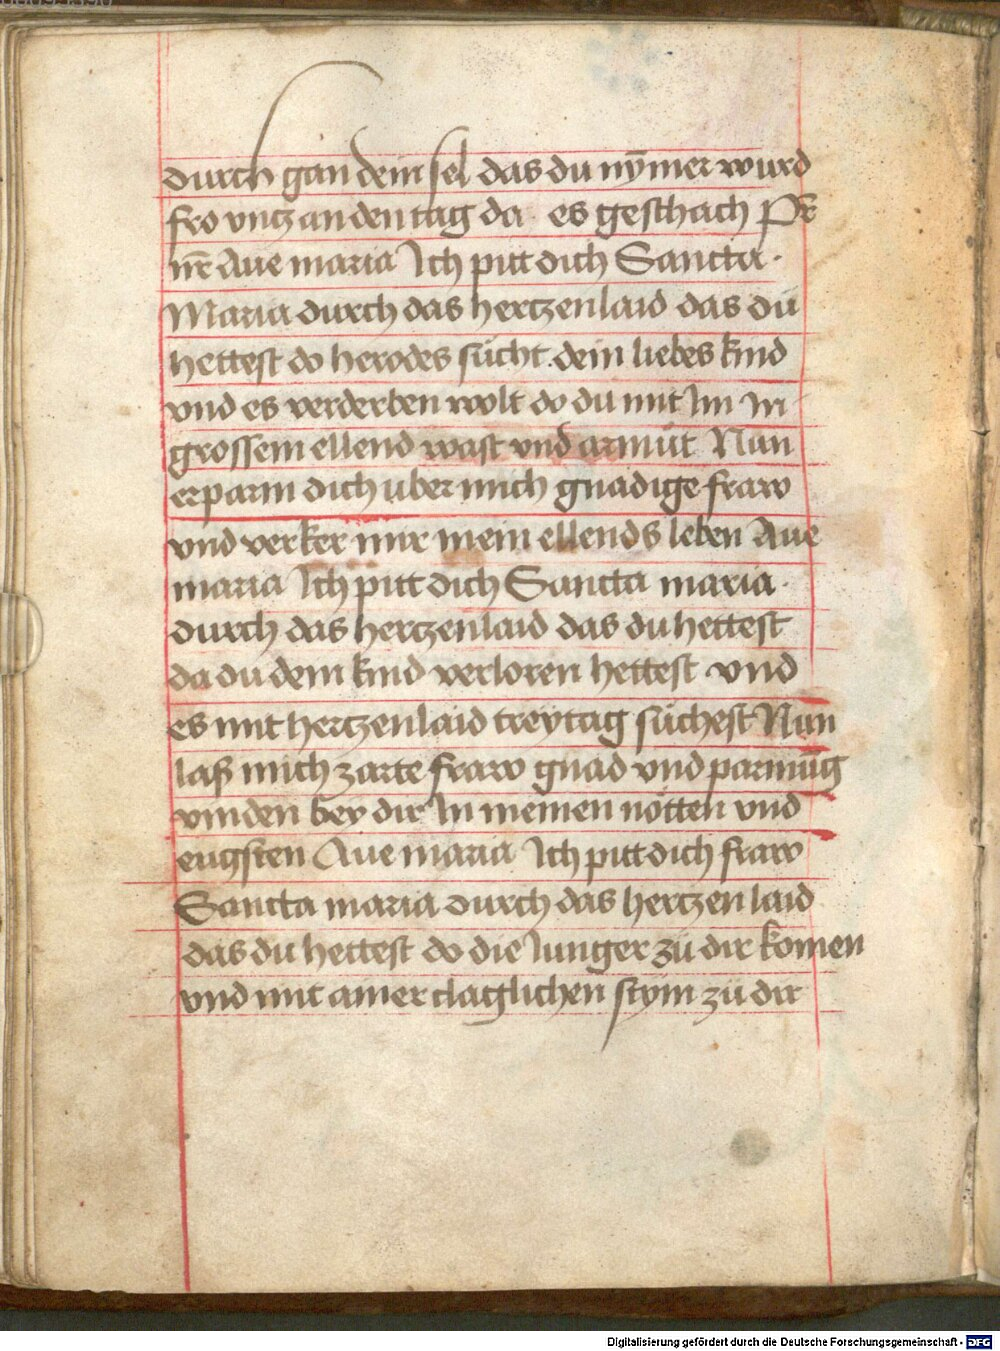 durch gan dein sel das du nym̄er wurd
fro vntz an den tag da es geschach Pr̄
nr̄ Aue maria Ich pitt dich Sancta
Maria durch das hertzenlaid das du
hettest do herodes sücht dein liebes kind
vnd es verderben wolt do du mit Im In
grossem ellend wast vnd armüt Nun
erparm dich uber mich gnadige fraw
vnd verker mir mein ellends leben Aue
maria Ich pitt dich Sancta maria
durch das hertzenlaid das du hettest
da du dem kind verloren hettest vnd
es mit hertzenlaid treytag süchest Nun
laß mich zarte fraw gnad vnd parmūg
vinden bey dir In meinen nötten vnd
engsten Aue maria Ich pitt dich fraw
Sancta maria durch das hertzenlaid
das du hettest do die Iunger zü dir komen
vnd mit amer claglichen stym zü dir
Digitalisierung gefördert durch die Deutsche Forschungsgemeinschaft - DFG